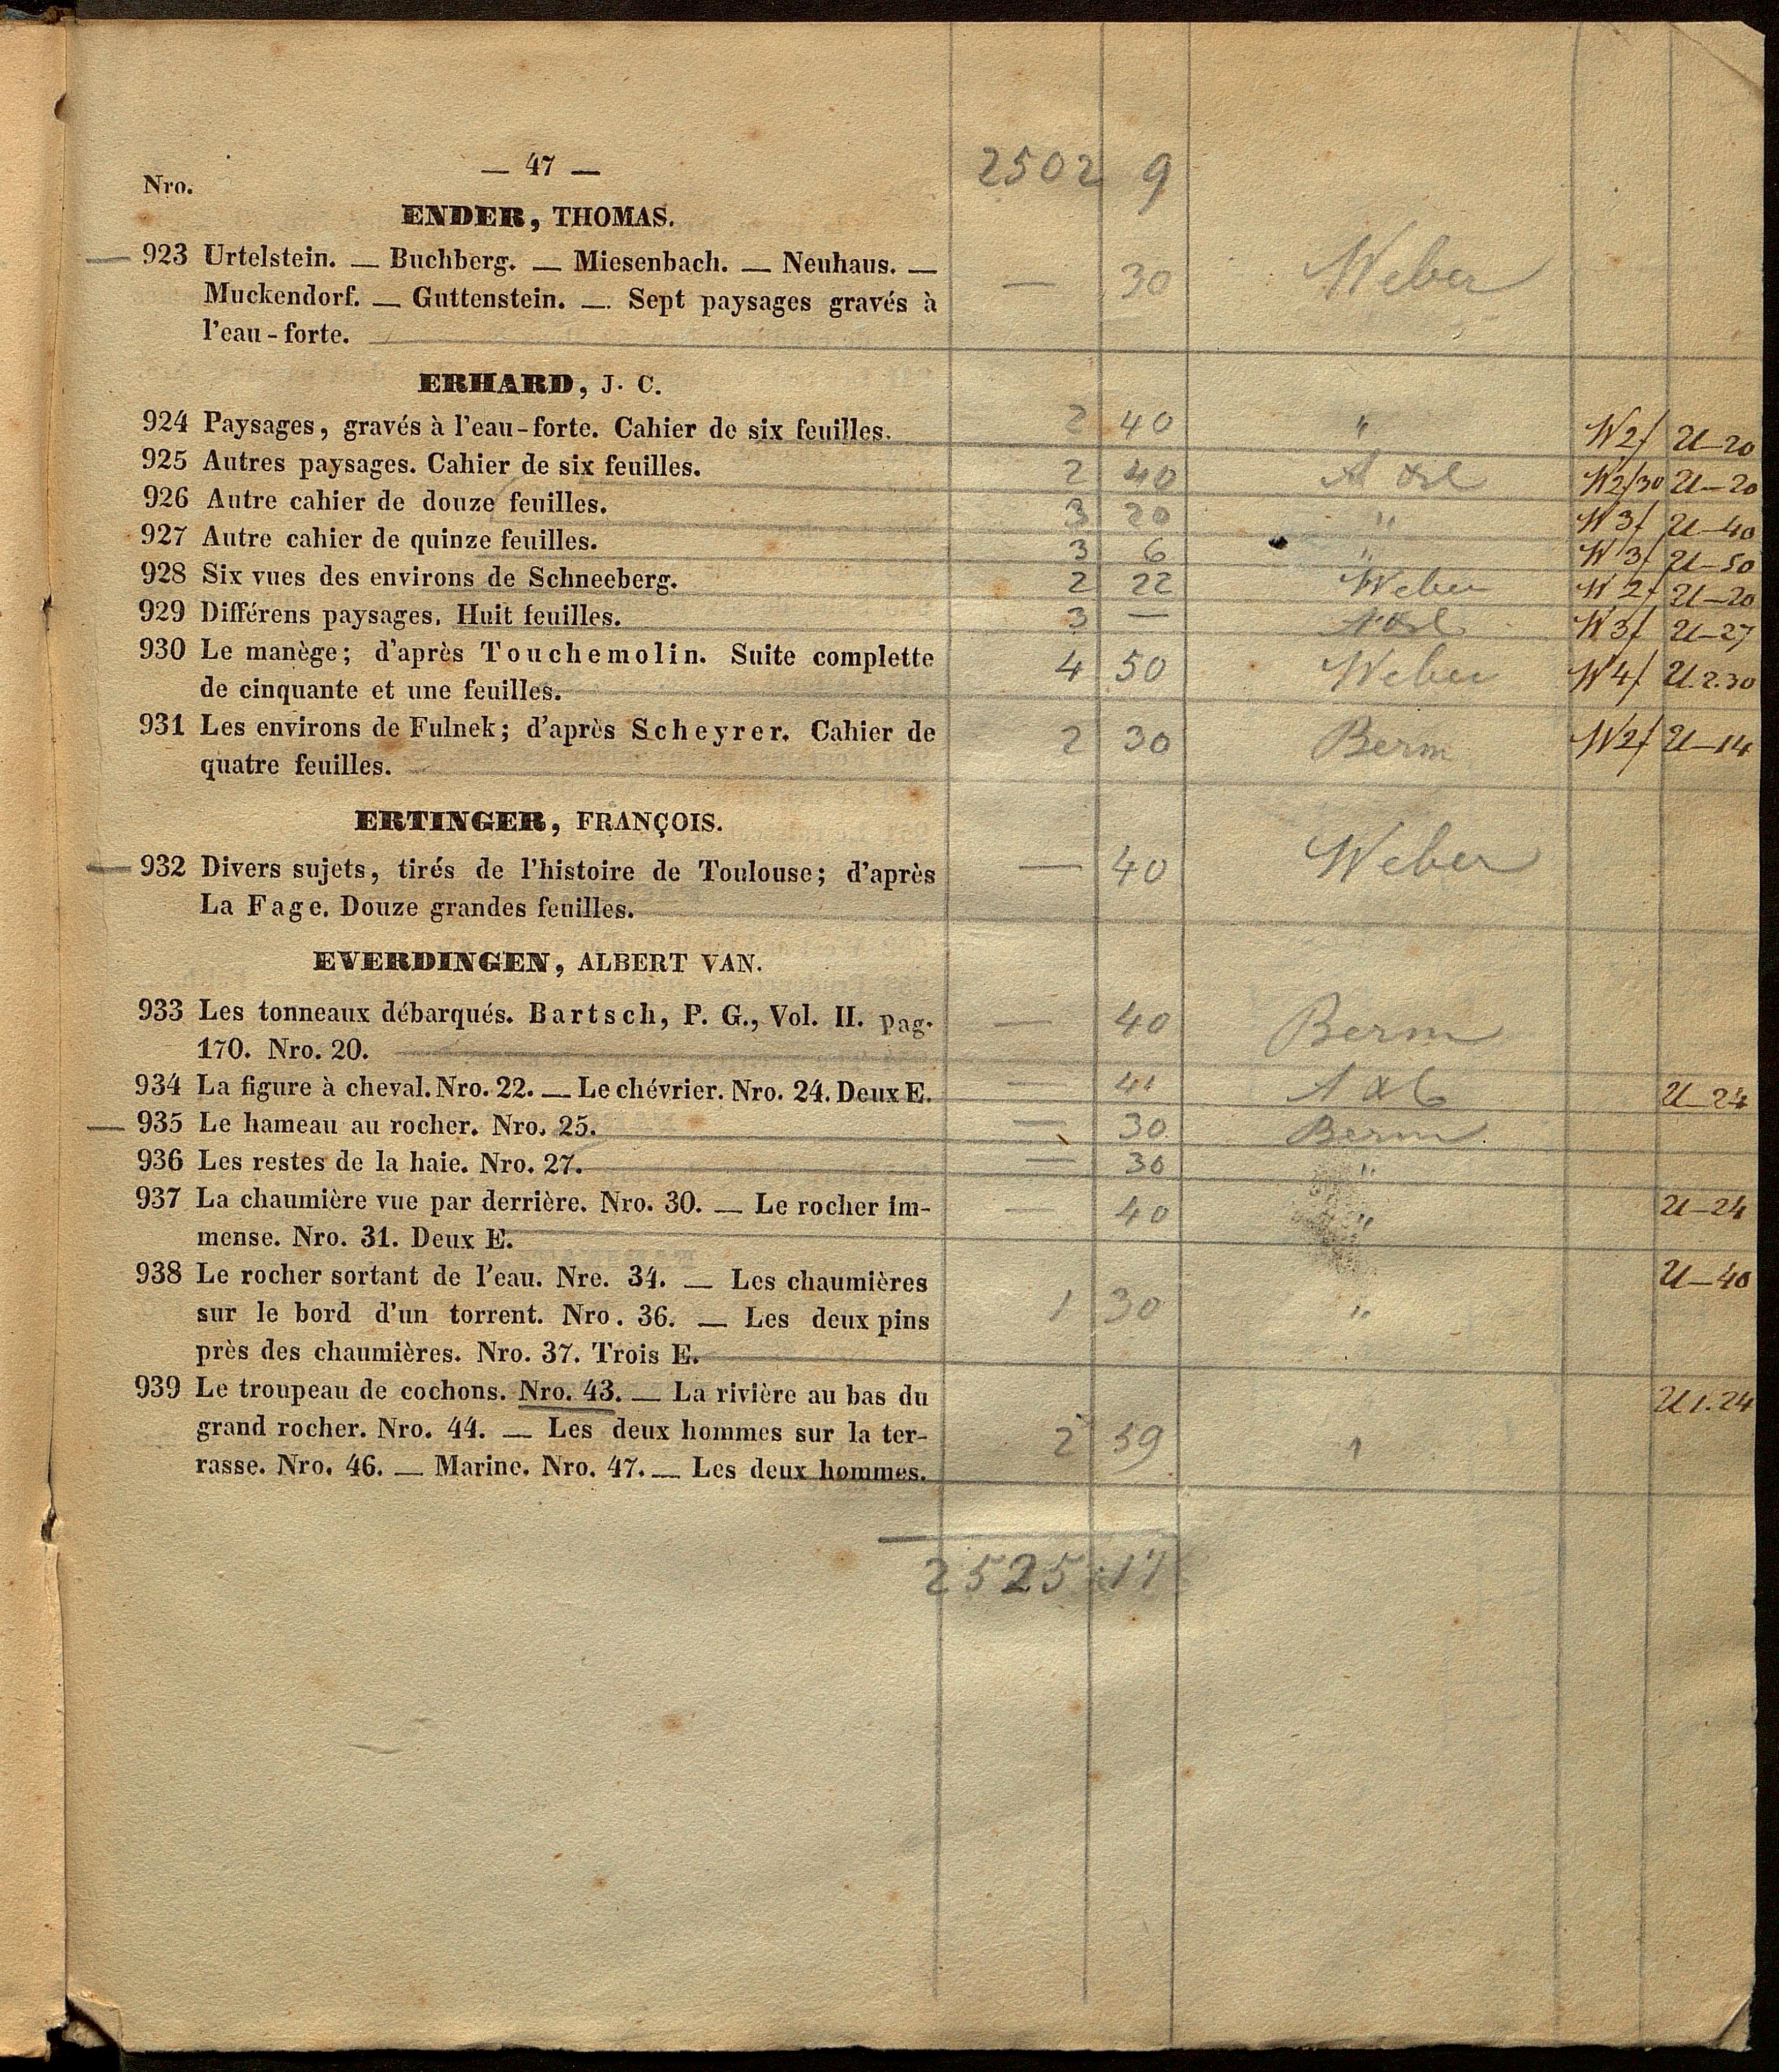 — 47 — 2502 9
Nro.
ENDER, THOMAS.
— 923 Urtelstein. — Buchberg. — Miesenbach. — Neuhaus. — — 30 Weber
Muckendorf. — Guttenstein. — Sept paysages gravés à
l'eau-forte.
ERHARD, J. C.
924 Paysages, gravés à l'eau-forte. Cahier de six feuilles. 2 40 " W2f U—20
925 Autres paysages. Cahier de six feuilles. 2 40 W2f30 U—20
926 Autre cahier de douze feuilles. 3 20 " W3f U—40
927 Autre cahier de quinze feuilles. 3 6 " W3f U—50
928 Six vues des environs de Schneeberg. 2 22 Weber W2f U—20
929 Différens paysages. Huit feuilles. 3 — W3f U—27
930 Le manège; d'après Touchemolin. Suite complette 4 50 Weber W4f U.2.30
de cinquante et une feuilles.
931 Les environs de Fulnek; d'après Scheyrer. Cahier de 2 30 Berm W2f U—14
quatre feuilles.
ERTINGER, FRANÇOIS.
— 932 Divers sujets, tirés de l'histoire de Toulouse; d'après — 40 Weber
La Fage. Douze grandes feuilles.
EVERDINGEN, ALBERT VAN.
933 Les tonneaux débarqués. Bartsch, P. G., Vol. II. pag. — 40 Berm
170. Nro. 20.
934 La figure à cheval. Nro. 22. — Le chévrier. Nro. 24. Deux E. — 41 U—24
— 935 Le hameau au rocher. Nro. 25. — 30 Berm
936 Les restes de la haie. Nro. 27. — 30 "
937 La chaumière vue par derrière. Nro. 30. — Le rocher im- — 40 " U—24
mense. Nro. 31. Deux E.
938 Le rocher sortant de l'eau. Nre. 34. — Les chaumières U—40
sur le bord d'un torrent. Nro. 36. — Les deux pins 1 30 "
près des chaumières. Nro. 37. Trois E.
939 Le troupeau de cochons. Nro. 43. — La rivière au bas du U1.24
grand rocher. Nro. 44. — Les deux hommes sur la ter- 2 59 "
rasse. Nro. 46. — Marine. Nro. 47. — Les deux hommes.
2525 17